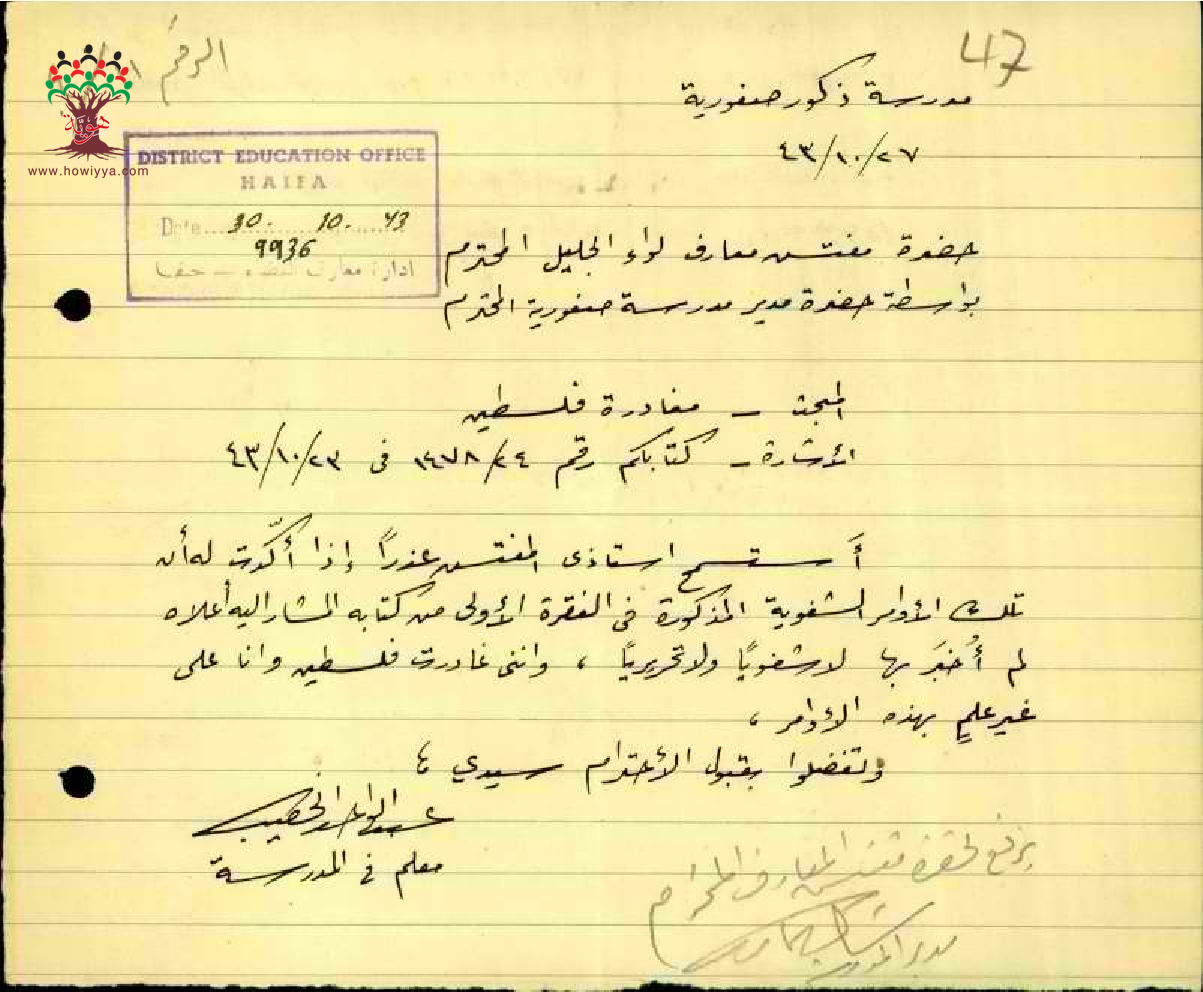 47
الرقم
هويّة
www.howiyya.com
مدرسة ذكور صفورية
٤٣/١٠/٢٧
DISTRICT EDUCATION OFFICE
HAIFA
Date 30. 10. 43
9936
ادارة معارف القضاء – حيفا
حضرة مفتش معارف لواء الجليل المحترم
بواسطة حضرة مدير مدرسة صفورية المحترم
المبحث – مغادرة فلسطين
الأشارة – كتابكم رقم ١٤٧٨/٢٤ فى ٤٣/١٠/٢٣
أستسمح استاذى المفتش عذراً إذا أكّدت له أن
تلك الأوامر الشفوية المذكورة فى الفقرة الأولى من كتابه المشار اليه أعلاه
لم أُخبَر بها لا شفوياً ولا تحريرياً ، واننى غادرت فلسطين وانا على
غير علمٍ بهذه الأوامر ،
وتفضلوا بقبول الأحترام سيدي ،
عبد الواحد الخطيب
معلم في المدرسة
يرفع لحضرة مفتش المعارف المحترم
مدير المدرسة